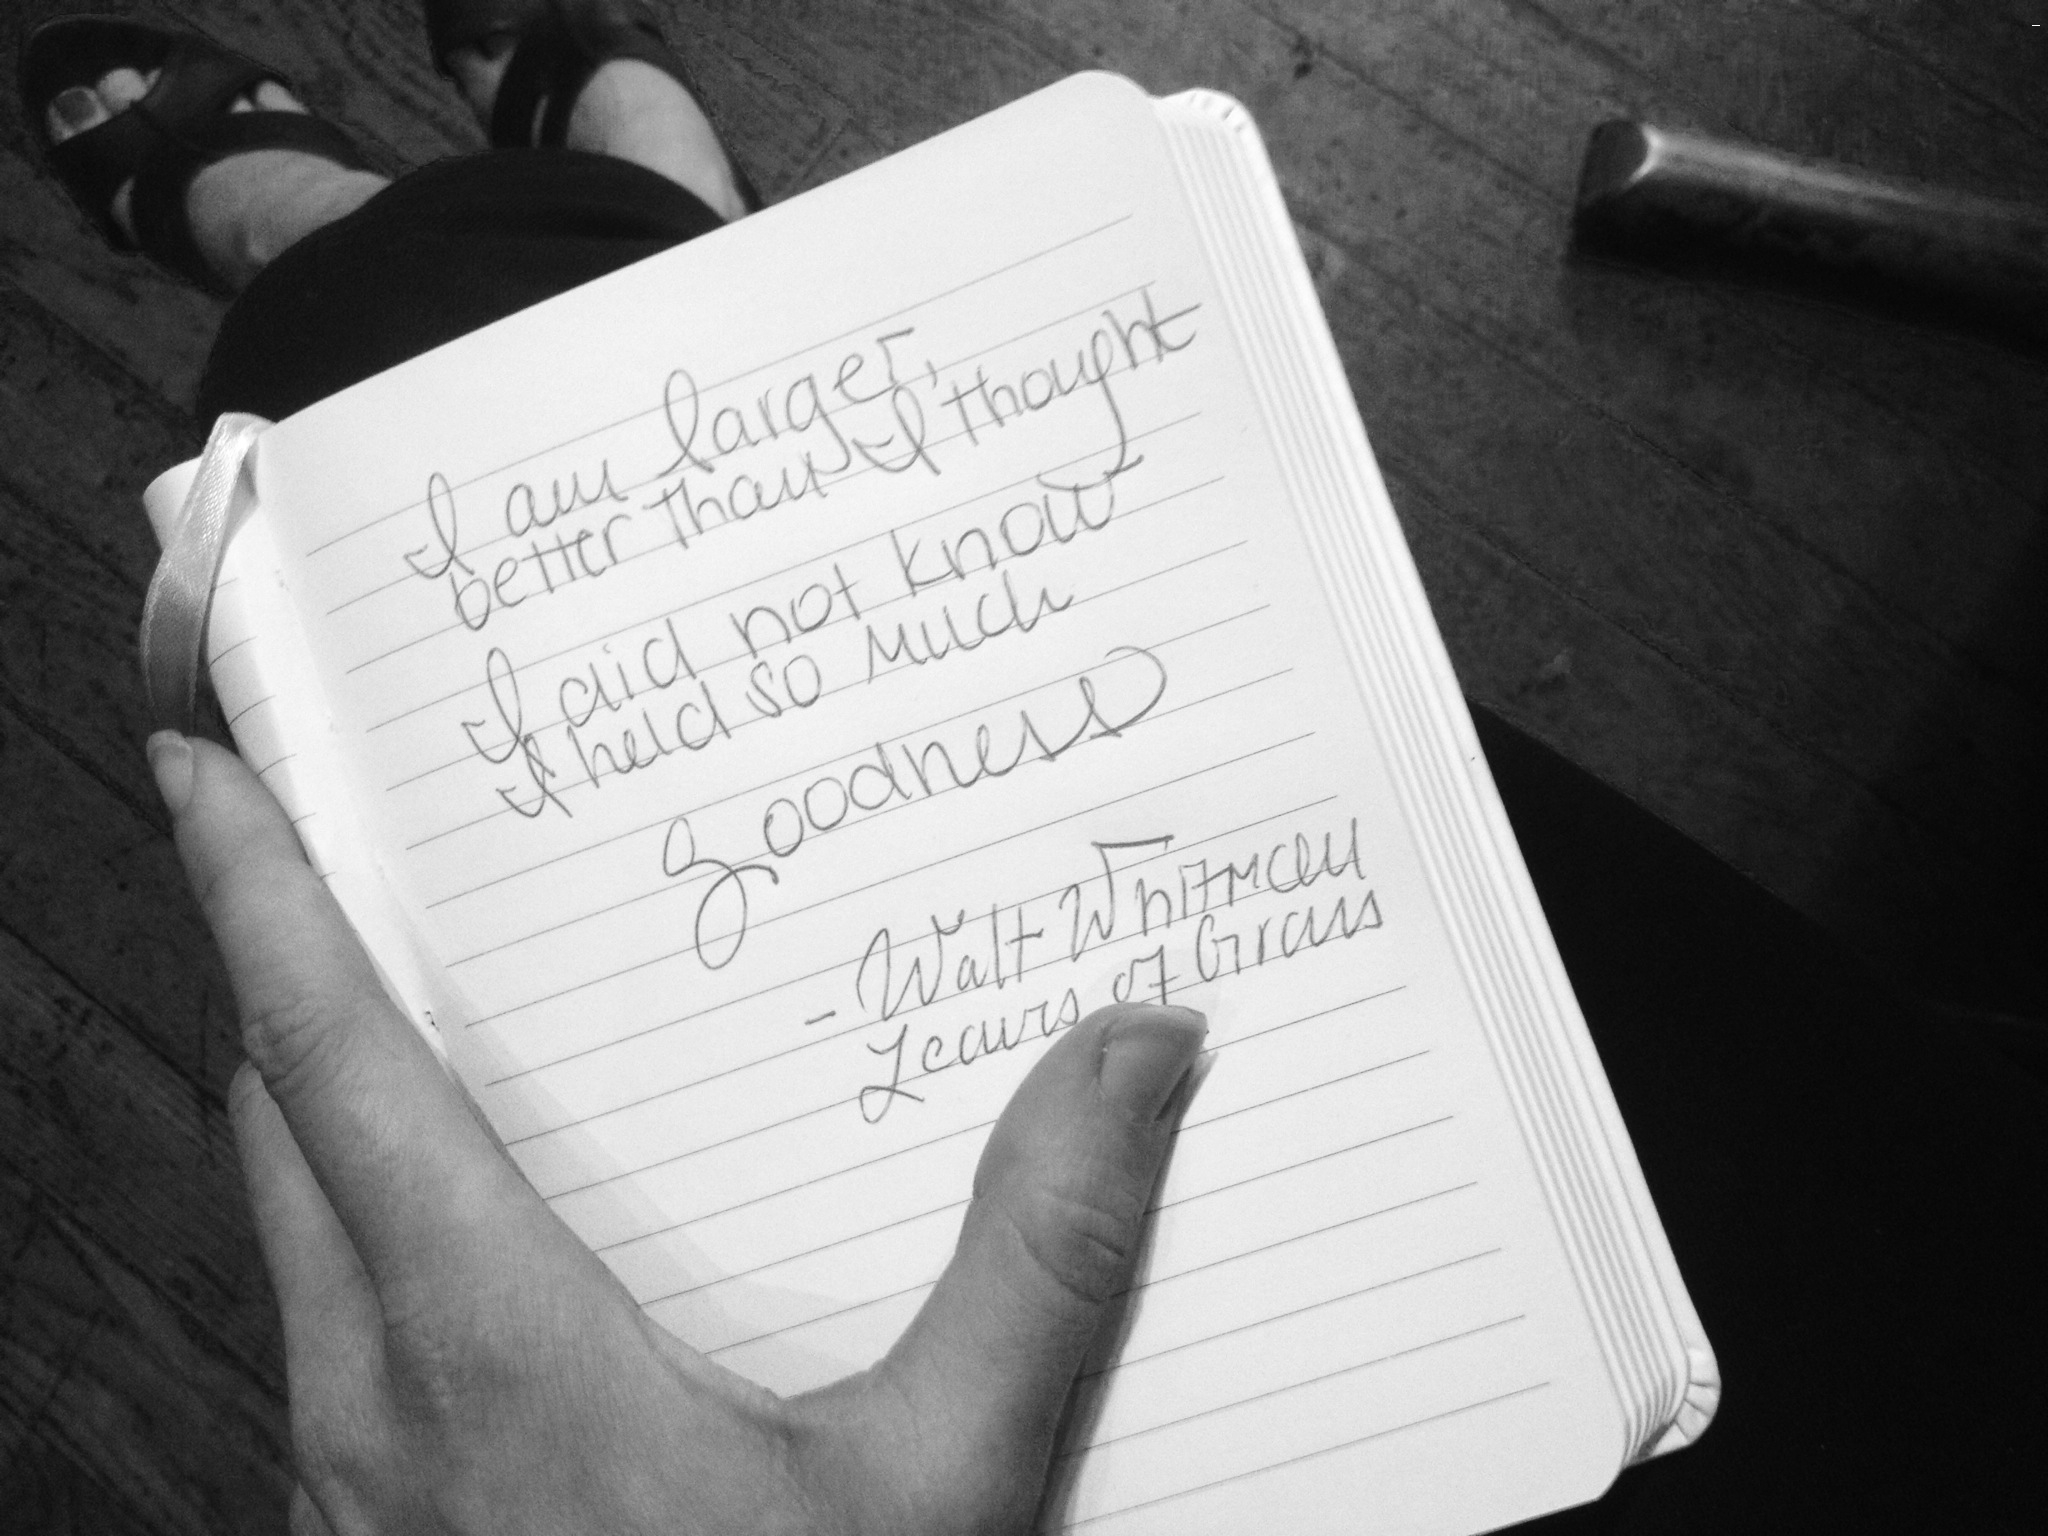 I am larger,
better than I thought
I did not know
I held so much
goodness
- Walt Whitman
Leaves of Grass